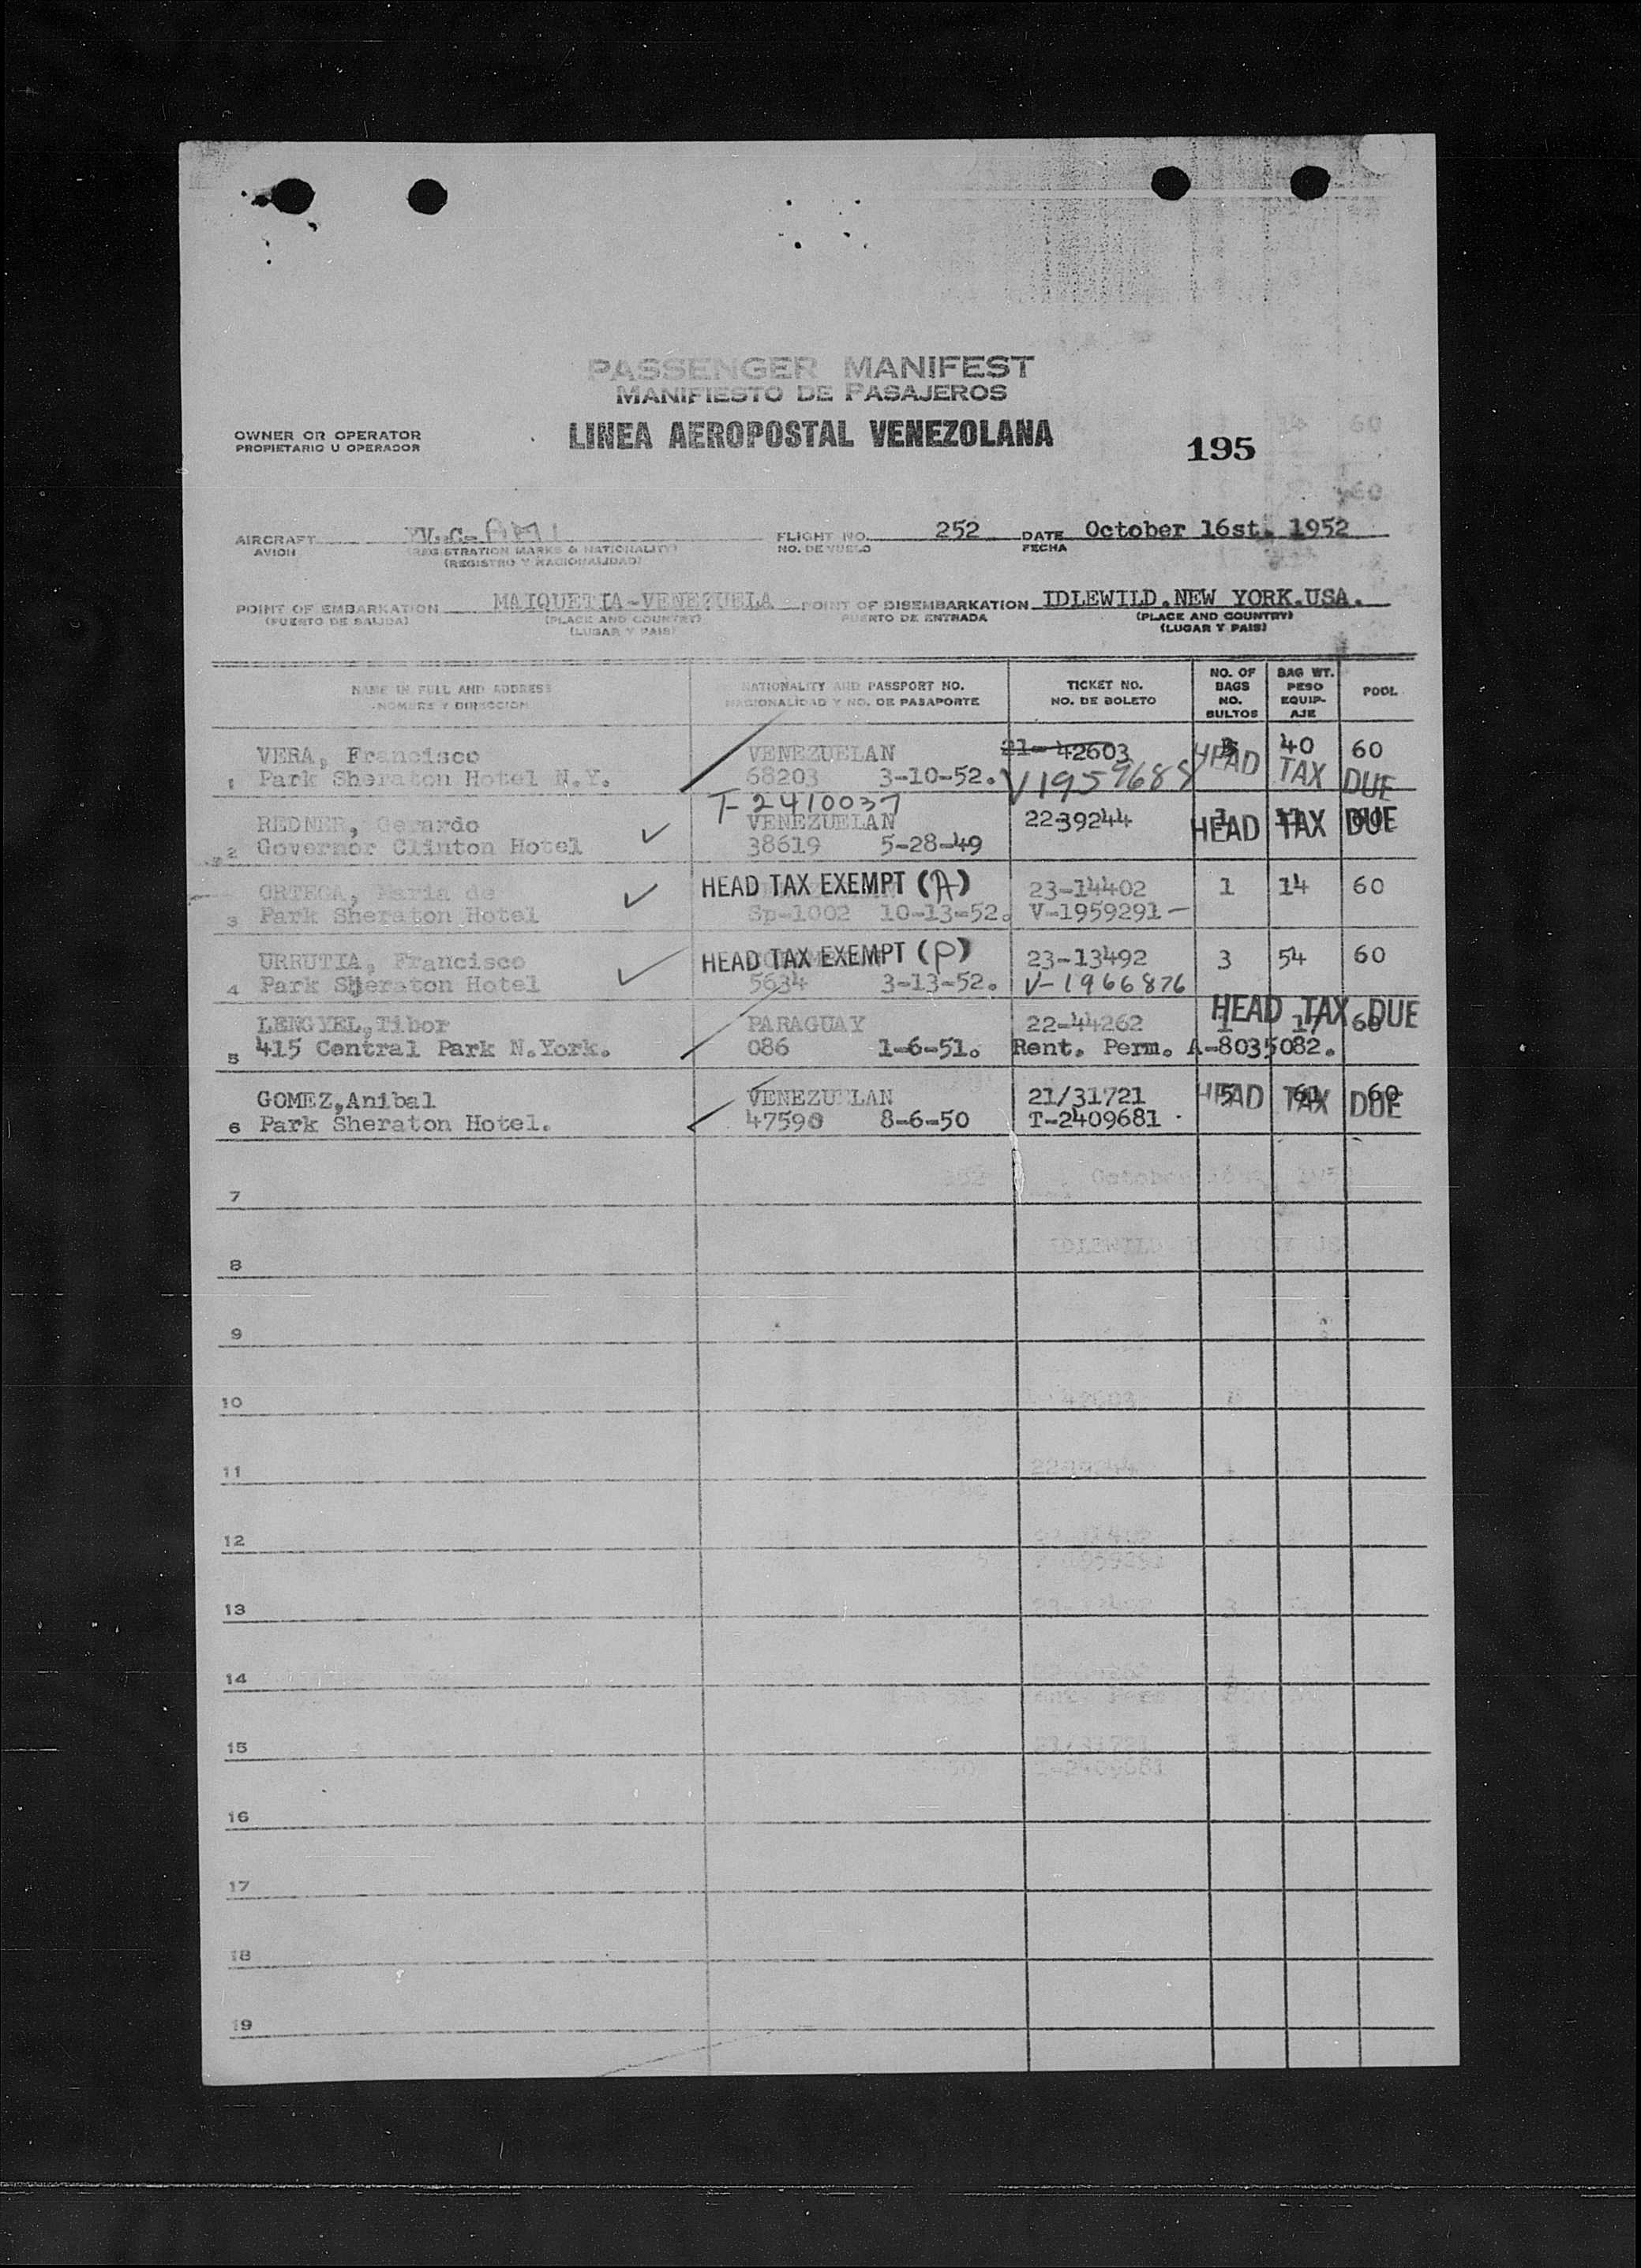 PASSENGER MANIFEST
MANIFIESTO DE PASAJEROS
OWNER OR OPERATOR
PROPIETARIO U OPERADOR
LINEA AEROPOSTAL VENEZOLANA
195
AIRCRAFT YV.C-
AVION
(REGISTRATION MARKS & NATIONALITY)
(REGISTRO Y NACIONALIDAD)
FLIGHT NO. 252 DATE October 16st. 1952
NO. DE VUELO FECHA
POINT OF EMBARKATION MAIQUETIA-VENEZUELA POINT OF DISEMBARKATION IDLEWILD.NEW YORK.USA.
(PUERTO DE SALIDA) (PLACE AND COUNTRY) PUERTO DE ENTRADA (PLACE AND COUNTRY)
(LUGAR Y PAIS) (LUGAR Y PAIS)
NAME IN FULL AND ADDRESS NATIONALITY AND PASSPORT NO. TICKET NO. NO. OF BAGS BAG WT. POOL
NOMBRE Y DIRECCION NACIONALIDAD Y NO. DE PASAPORTE NO. DE BOLETO NO. BULTOS PESO EQUIP-AJE
VERA, Francisco VENEZUELAN 21-42603 40 60
1 Park Sheraton Hotel N.Y. 68203 3-10-52. V1959688 HEAD TAX DUE
T-2410037
REDNER, Gerardo VENEZUELAN 2239244 1 HEAD TAX DUE
2 Governor Clinton Hotel 38619 5-28-49
ORTEGA, Maria de HEAD TAX EXEMPT (A) 23-14402 1 14 60
3 Park Sheraton Hotel Sp-1002 10-13-52. V-1959291-
URRUTIA, Francisco HEAD TAX EXEMPT (P) 23-13492 3 54 60
4 Park Sheraton Hotel 5634 3-13-52. V-1966876
HEAD TAX DUE
LENGYEL,Tibor PARAGUAY 22-44262 1 17 60
5 415 Central Park N.York. 086 1-6-51. Rent. Perm. A-8035082.
GOMEZ,Anibal VENEZUELAN 21/31721 5 61 60
HEAD TAX DUE
6 Park Sheraton Hotel. 47590 8-6-50 T-2409681
7
8
9
10
11
12
13
14
15
16
17
18
19